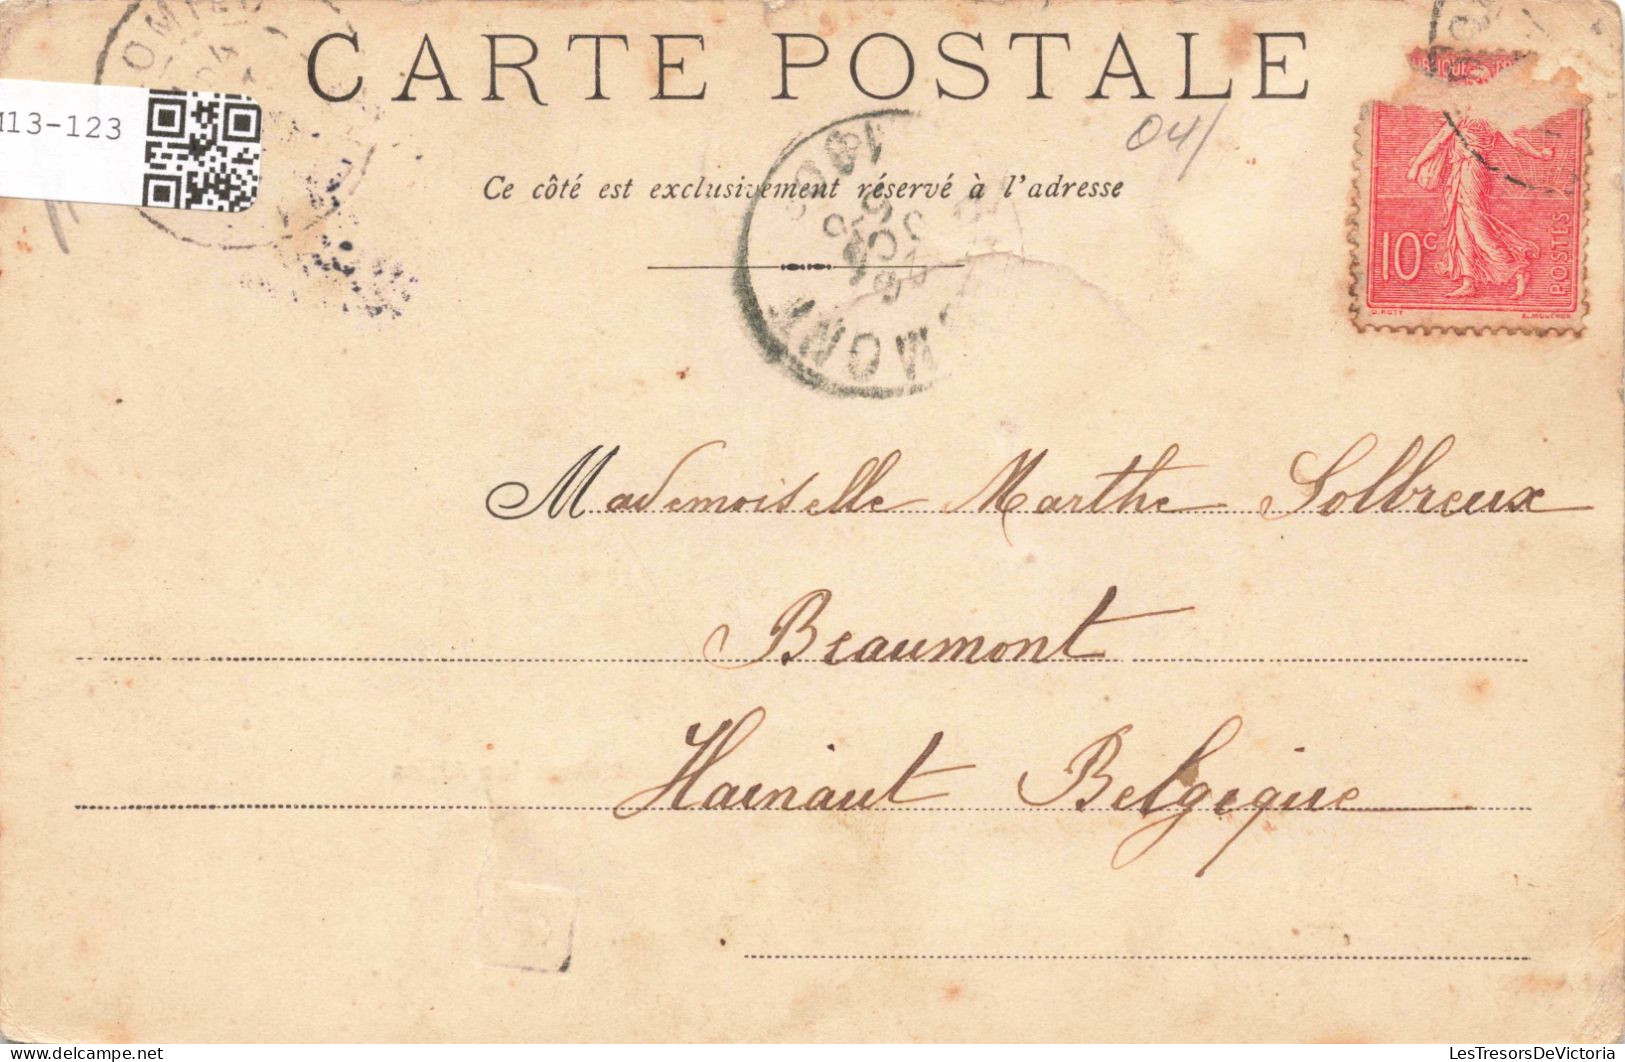 CARTE POSTALE
13-123
04/
Ce côté est exclusivement réservé à l'adresse
10c
POSTES
O.ROTY
Mademoiselle Marthe Solbreux
Beaumont
Hainaut Belgique
LesTresorsDeVictoria